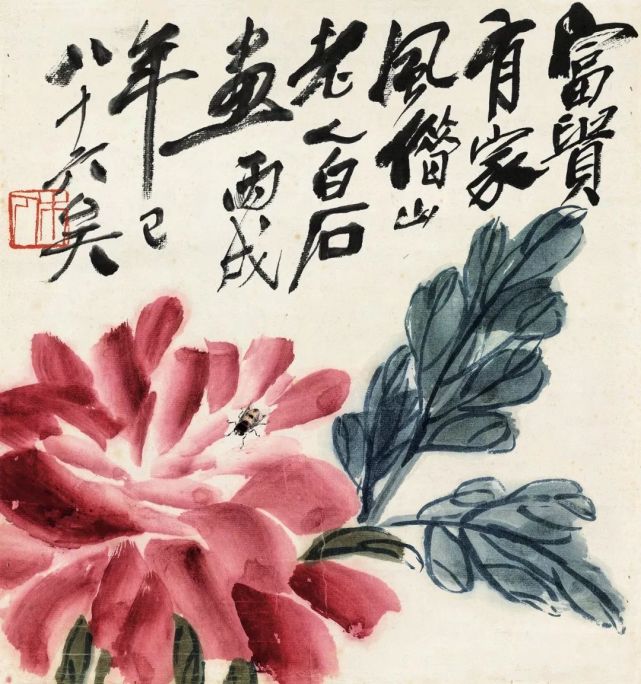 富貴
有家
風借山
老人白石
畫丙戌
年已
八十六矣